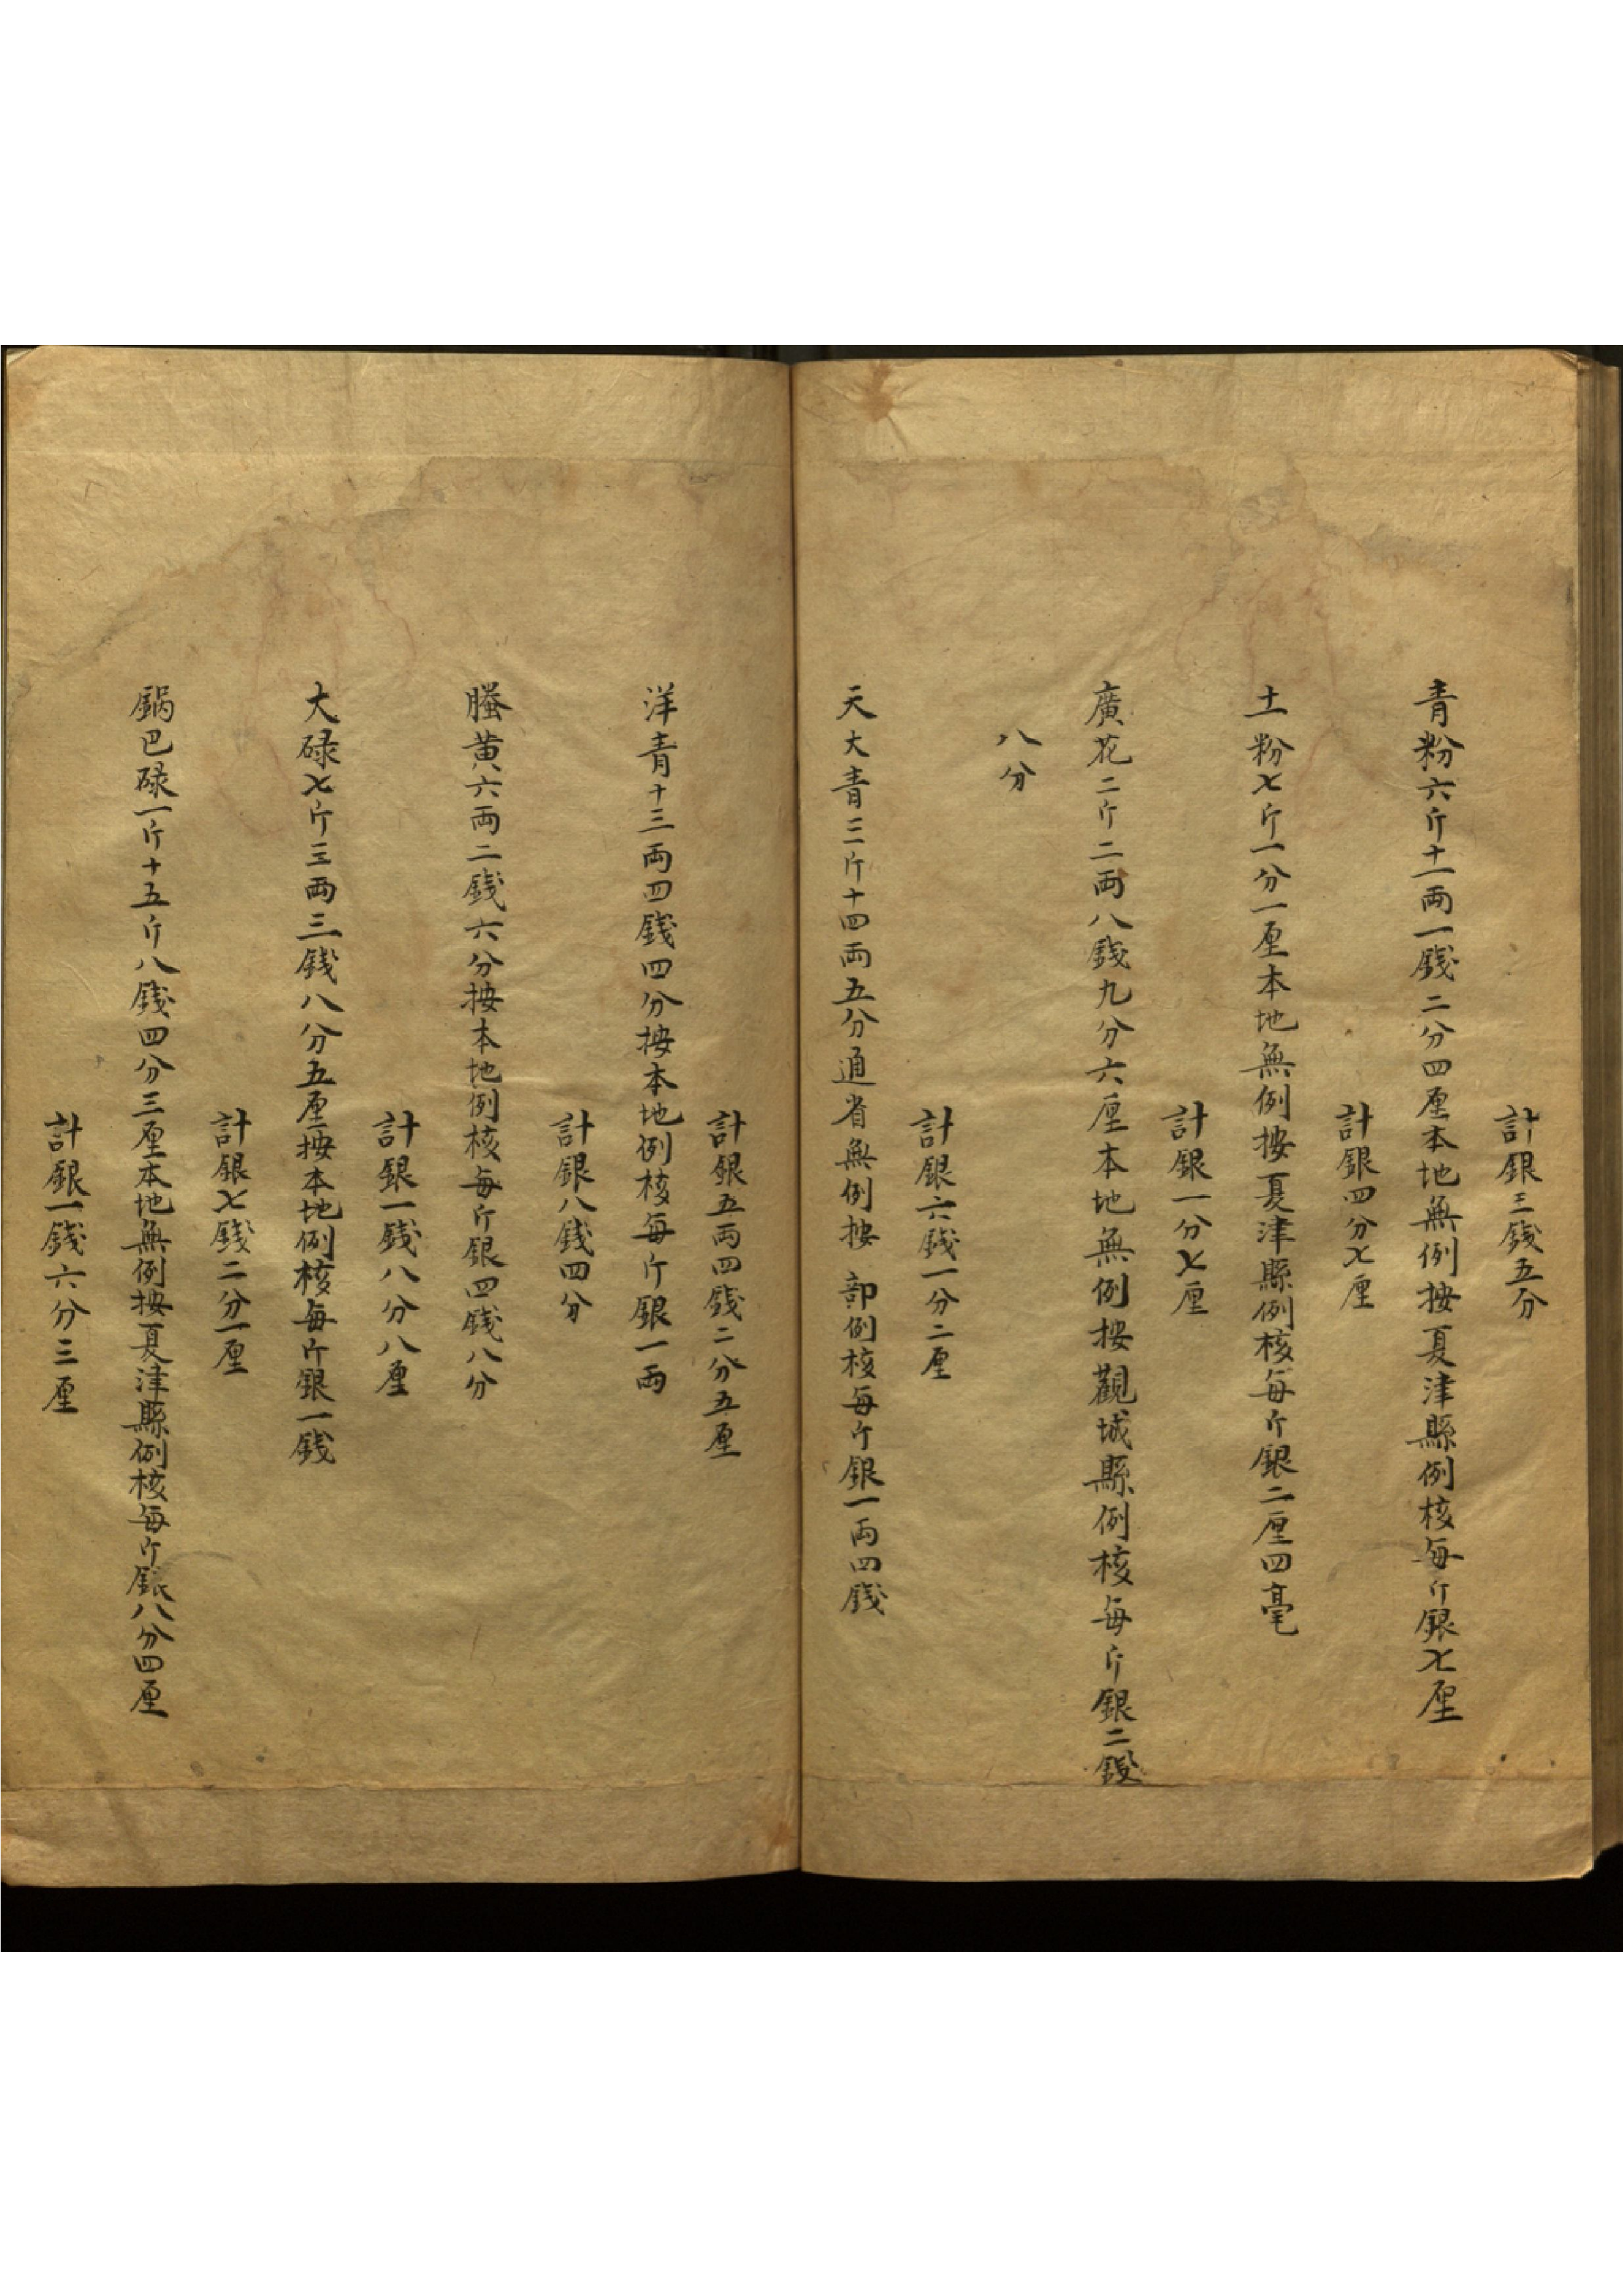 計銀三錢五分
青粉六斤十一兩一錢二分四厘本地無例按夏津縣例核每斤銀七厘
計銀四分七厘
土粉七斤一分一厘本地無例按夏津縣例核每斤銀二厘四毫
計銀一分七厘
廣花二斤二兩八錢九分六厘本地無例按觀城縣例核每斤銀二錢
八分
計銀六錢一分二厘
天大青三斤十四兩五分通省無例按 部例核每斤銀一兩四錢
計銀五兩四錢二分五厘
洋青十三兩四錢四分按本地例核每斤銀一兩
計銀八錢四分
螣黃六兩二錢六分按本地例核每斤銀四錢八分
計銀一錢八分八厘
大碌七斤三兩三錢八分五厘按本地例核每斤銀一錢
計銀七錢二分一厘
鍋巴碌一斤十五斤八錢四分三厘本地無例按夏津縣例核每斤銀八分四厘
計銀一錢六分三厘